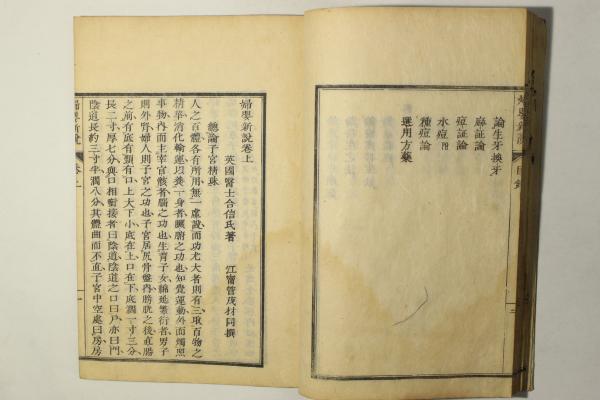 婦嬰新說
目錄
二
論生牙換牙
麻証論
痘証論
水痘附
種痘論
選用方藥
婦嬰新說卷上
英國醫士合信氏著
江甯管茂材同撰
總論子宮精珠
人之百體各有所用無一虛設而功尤大者則有三取百物之
精華消化輸運以養一身者臟腑之功也知覺運動外而燭照
事物內而主宰官骸者腦之功也生育子女綿延繁衍者男子
則外腎婦人則子宮之功也子宮居尻骨盤內膀胱之後直腸
之前有底有頸有口上大下小底在上口在下底濶一寸三分
長二寸厚七分與口相銜接者曰陰道陰道之口曰戶亦曰門
陰道長約三寸半濶八分其體曲而不直子宮中空處曰房房
婦嬰新說
卷上
一